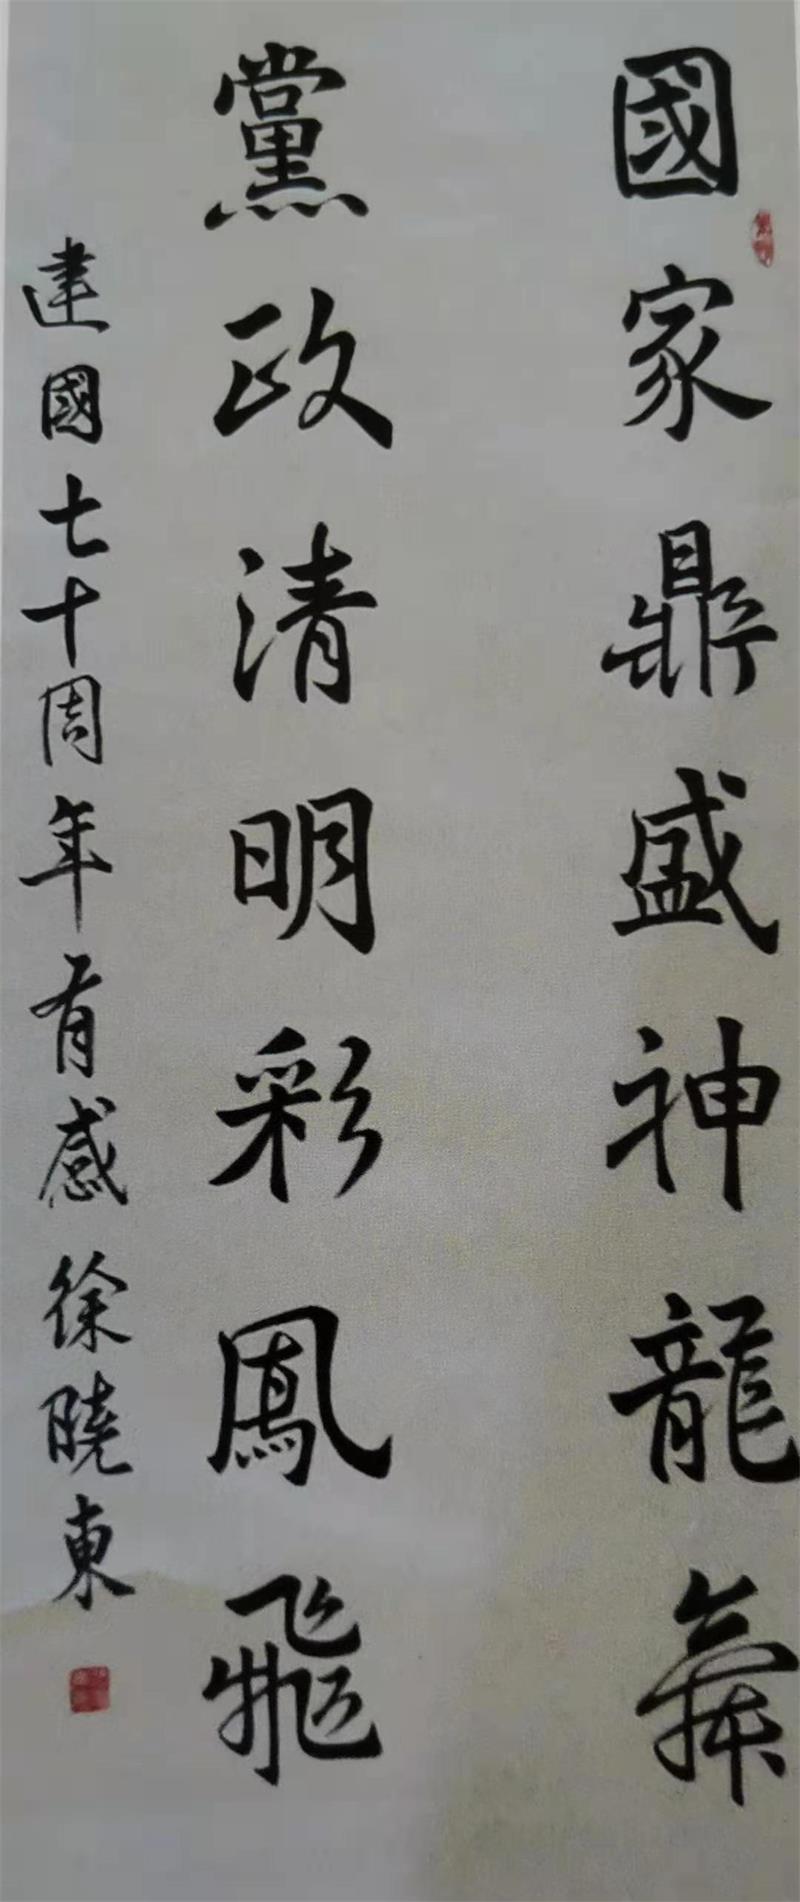 國家鼎盛神龍舞
黨政清明彩鳳飛
建國七十周年有感 徐曉東